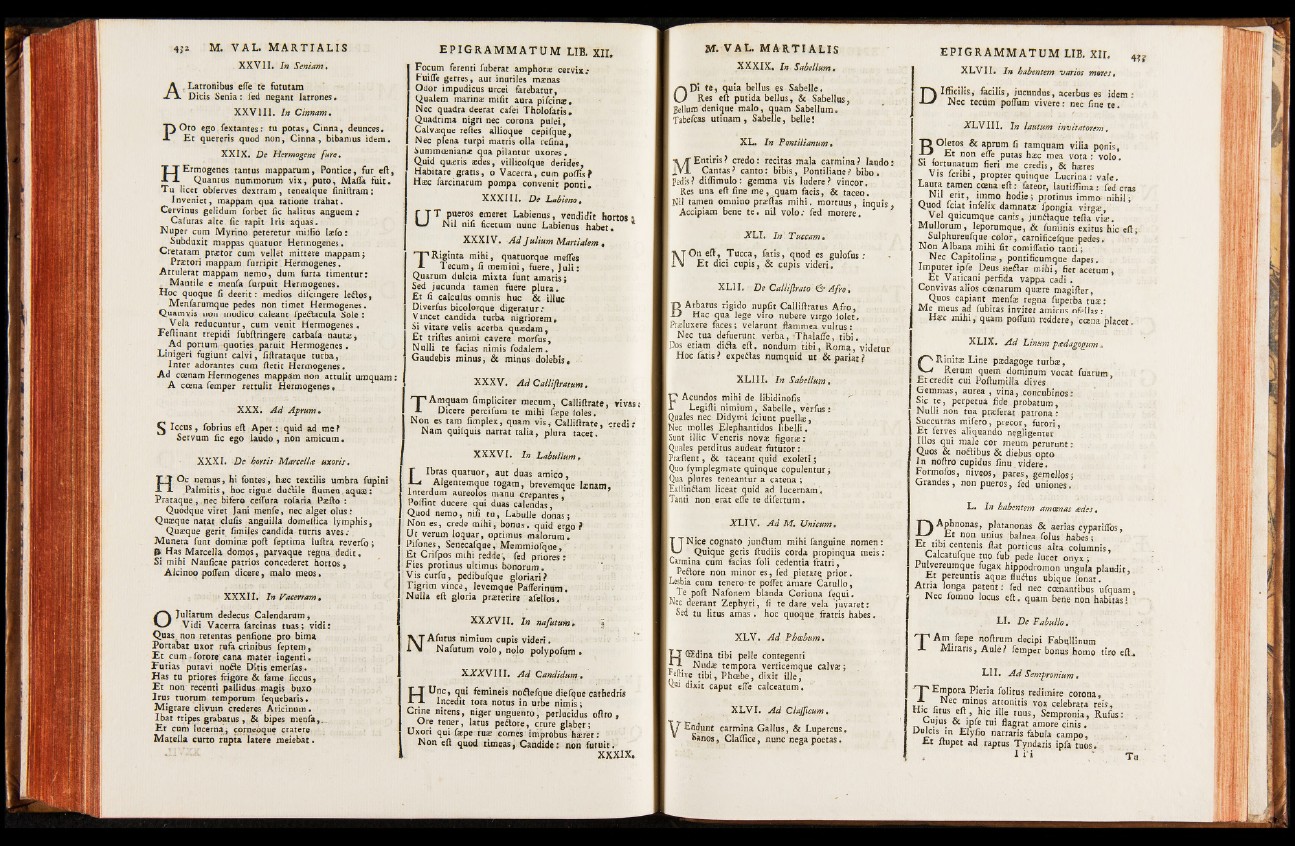 432 M. VAL. MARTIALIS
XXVII. In Seniam.
A Latronibus esse te fututam
Dicis Senia: sed negant latrones.
XXVIII. In Cinnam.
POto ego sextantes: tu potas, Cinna, deunces.
Et quereris quod non, Cinna, bibamus idem.
XXIX. De Hermogene fure.
HErmogenes tantus mapparum, Pontice, fur est,
Quantus nummorum vix, puto, Massa fuit.
Tu licet observes dextram, teneasque sinistram:
Inveniet, mappam qua ratione trahat.
Cervinus gelidum sorbet sic halitus anguem:
Casuras alte sic rapit Iris aquas.
Nuper cum Myrino peteretur missio læso:
Subduxit mappas quatuor Hermogenes.
Cretatam prætor cum vellet mittere mappam;
Prætori mappam surripit Hermogenes.
Attulerat mappam nemo, dum furta timentur:
Mantile e mensa surpuit Hermogenes.
Hoc quoque si deerit: medios discingere lectos,
Mensarumque pedes non timet Hermogenes.
Quamvis non modico caleant spectacula Sole:
Vela reducuntur, cum venit Hermogenes.
Festinant trepidi substringere carbasa nautæ,
Ad portum quoties paruit Hermogenes.
Linigeri fugiunt calvi, sistrataque turba,
Inter adorantes cum stetit Hermogenes.
Ad cœnam Hermogenes mappam non attulit umquam:
A cœna semper rettulit Hermogenes.
XXX. Ad Aprum.
SIccus, sobrius est Aper: quid ad me?
Servum sic ego laudo, non amicum.
XXXI. De hortis Marcellæ uxoris.
HOc nemus, hi fontes, hæc textilis umbra supini
Palmitis, hoc riguæ ductile flumen aquæ:
Prataque, nec bifero cessura rosaria Pæsto:
Quodque viret Jani mense, nec alget olus:
Quæque natat clusis anguilla domestica lymphis,
Quæque gerit similes candida turris aves:
Munera sunt dominæ post septima lustra reverso;
Has Marcella domos, parvaque regna dedit.
Si mihi Nausicae patrios concederet hortos,
Alcinoo possem dicere, malo meos.
XXXII. In Vacerram.
O Juliarum dedecus Calendarum,
Vidi Vacerra sarcinas tuas; vidi:
Quas non retentas pensione pro bima
Portabat uxor rufa crinibus septem,
Et cum sorore cana mater ingenti.
Furias putavi nocte Ditis emersas.
Has tu priores frigore & fame siccus,
Et non recenti pallidus magis buxo
Irus tuorum temporum sequebaris.
Migrare clivum crederes Aricinum.
Ibat tripes grabatus, & bipes mensa,
Et cum lucerna, corneoque cratere
Matella curto rupta latere meiebat.
EPIGRAMMATUM LIB. XII.
Focum ferenti suberat amphoræ cervix:
Fuisse gerres, aut inutiles mænas
Odor impudicus urcei fatebatur,
Qualem marinæ misit aura piscinæ.
Nec quadra deerat casei Tholosatis.
Quadrima nigri nec corona pulei,
Calvæque restes allioque cepisque,
Nec plena turpi matris olla resina,
Summœnianæ qua pilantur uxores.
Quid quæris ædes, villicosque derides,
Habitare gratis, o Vacerra, cum possis?
Hæc sarcinarum pompa convenit ponti.
XXXIII. De Labieno.
UT pueros emeret Labienus, vendidit hortos;
Nil nisi ficetum nunc Labienus habet.
XXXIV. Ad Julium Martialem.
TRiginta mihi, quatuorque messes
Tecum, si memini, fuere, Juli:
Quarum dulcia mixta sunt amaris;
Sed jucunda tamen fuere plura.
Et si calculus omnis huc & illuc
Diversus bicolorque digeratur:
Vincet candida turba nigriorem.
Si vitare velis acerba quædam,
Et tristes animi cavere morsus,
Nulli te facias nimis sodalem.
Gaudebis minus, & minus dolebis.
XXXV. Ad Callistratum.
TAmquam simpliciter mecum, Callistrate, vivas:
Dicere percisum te mihi sæpe soles.
Non es tam simplex, quam vis, Callistrate, credi:
Nam quisquis narrat talia, plura tacet.
XXXVI. In Labullum.
LIbras quatuor, aut duas amico,
Algentemque togam, brevemque lænam,
Interdum aureolos manu crepantes,
Possint ducere qui duas calendas,
Quod nemo, nisi tu, Labulle donas;
Non es, crede mihi, bonus. quid ergo?
Ut verum loquar, optimus malorum.
Pisones, Senecasque, Memmiosque,
Et Crispos mihi redde, sed priores:
Fies protinus ultimus bonorum.
Vis cursu, pedibusque gloriari?
Tigrim vince, levemque Passerinum.
Nulla est gloria præterire asellos.
XXXVII. In nasutum.
NAsutus nimium cupis videri.
Nasutum volo, nolo polyposum.
XXXVIII. Ad Candidum.
HUnc, qui femineis noctesque diesque cathedris
Incedit tota notus in urbe nimis;
Crine nitens, niger unguento, perlucidus ostro,
Ore tener, latus pectore, crure glaber;
Uxori qui sæpe tuæ comes improbus hæret:
Non est quod timeas, Candide: non futuit.
XXXIX.
M. VAL. MARTIALIS
XXXIX. In Sabellum.
ODi te, quia bellus es Sabelle.
Res est putida bellus, & Sabellus,
Bellum denique malo, quam Sabellum.
Tabescas utinam, Sabelle, belle!
XL. In Pontilianum.
MEntiris? credo: recitas mala carmina? laudo:
Cantas? canto: bibis, Pontiliane? bibo.
Pedis? dissimulo: gemma vis ludere? vincor.
Res una est sine me, quam facis, & taceo.
Nil tamen omnino præstas mihi. mortuus, inquis,
Accipiam bene te. nil volo: sed morere.
XLI. In Tuccam.
NOn est, Tucca, satis, quod es gulosus:
Et dici cupis, & cupis videri.
XLII. De Callistrato & Afro.
BArbatus rigido nupsit Callistratus Afro,
Hac qua lege viro nubere virgo solet.
Præluxere faces; velarunt flammea vultus:
Nec tua defuerunt verba, Thalasse, tibi.
Dos etiam dicta est. nondum tibi, Roma, videtur
Hoc satis? expectas numquid ut & pariat?
XLIII. In Sabellum.
FAcundos mihi de libidinosis
Legisti nimium, Sabelle, versus:
Quales nec Didymi sciunt puellæ,
Nec molles Elephantidos libelli.
Sunt illic Veneris novæ figuræ:
Quales perditus audeat fututor:
Præstent, & taceant quid exoleti;
Quo symplegmate quinque copulentur;
Qua plures teneantur a catena;
Extinctam liceat quid ad lucernam.
Tanti non erat esse te disertum.
XLIV. Ad M. Unicum.
UNice cognato junctum mihi sanguine nomen:
Quique geris studiis corda propinqua meis:
Carmina cum facias soli cedentia fratri,
Pectore non minor es, sed pietate prior.
Lesbia cum tenero te posset amare Catullo,
Te post Nasonem blanda Corinna sequi.
Nec deerant Zephyri, si te dare vela juvaret:
Sed tu litus amas. hoc quoque fratris habes.
XLV. Ad Phœbum.
HŒdina tibi pelle contegenti
Nudæ tempora verticemque calvæ;
Festive tibi, Phœbe, dixit ille,
Qui dixit caput esse calceatum.
XLVI. Ad Classicum.
VEndunt carmina Gallus, & Lupercus.
Sanos, Classice, nunc nega poetas.
EPIGRAMMATUM LIB. XII. 433
XLVII. In habentem varios mores.
DIfficilis, facilis, jucundus, acerbus es idem:
Nec tecum possum vivere: nec sine te.
XLVIII. In lautum invitatorem.
BOletos & aprum si tamquam vilia ponis,
Et non esse putas hæc mea vota: volo.
Si fortunatum fieri me credis, & hæres
Vis scribi, propter quinque Lucrina: vale.
Lauta tamen cœna est: fateor, lautissima: sed cras
Nil erit, immo hodie; protinus immo nihil;
Quod sciat infelix damnatæ spongia virgæ,
Vel quicumque canis, junctaque testa viæ.
Mullorum, leporumque, & suminis exitus hic est,
Sulphureusque color, carnificesque pedes.
Non Albana mihi sit comissatio tanti;
Nec Capitolinæ, pontificumque dapes.
Imputet ipse Deus nectar mihi, fiet acetum,
Et Vaticani perfida vappa cadi.
Convivas alios cœnarum quære magister,
Quos capiant mensæ regna superba tuæ:
Me meus ad subitas invitet amicus ofellas:
Hæc mihi, quam possum reddere, cœna placet.
XLIX. Ad Linum pædagogum.
CRinitæ Line pædagoge turbæ,
Rerum quem dominum vocat suarum,
Et credit cui Postumilla dives
Gemmas, aurea, vina, concubinos:
Sic te, perpetua fide probatum,
Nulli non tua præferat patrona:
Succurras misero, precor, furori,
Et serves aliquando negligenter
Illos qui male cor meum perurunt:
Quos & noctibus & diebus opto
In nostro cupidus sinu videre.
Formosos, niveos, pares, gemellos;
Grandes, non pueros, sed uniones.
L. In habentem amœnas ædes.
DAphnonas, platanonas & aerias cyparissos,
Et non unius balnea solus habes;
Et tibi centenis stat porticus alta columnis,
Calcatusque tuo sub pede lucet onyx;
Pulvereumque fugax hippodromon ungula plaudit,
Et pereuntis aquæ fluctus ubique sonat.
Atria longa patent: sed nec cœnantibus usquam,
Nec somno locus est. quam bene non habitas!
LI. De Fabullo.
TAm sæpe nostrum decipi Fabullinum
Miraris, Aule? semper bonus homo tiro est.
LII. Ad Sempronium.
TEmpora Pieria solitus redimire corona,
Nec minus attonitis vox celebrata reis,
Hic situs est, hic ille tuus, Sempronia, Rufus:
Cujus & ipse tui flagrat amore cinis.
Dulcis in Elysio narraris fabula campo,
Et stupet ad raptus Tyndaris ipsa tuos.
I i i Tu